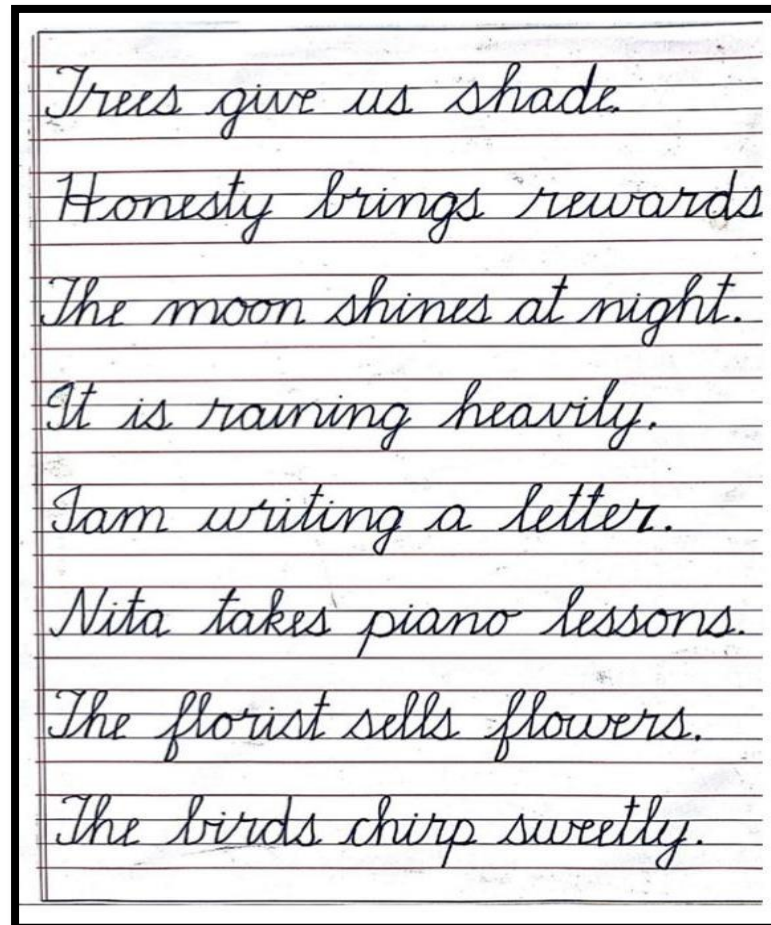 Trees give us shade.
Honesty brings rewards
The moon shines at night.
It is raining heavily.
I am writing a letter.
Nita takes piano lessons.
The florist sells flowers.
The birds chirp sweetly.